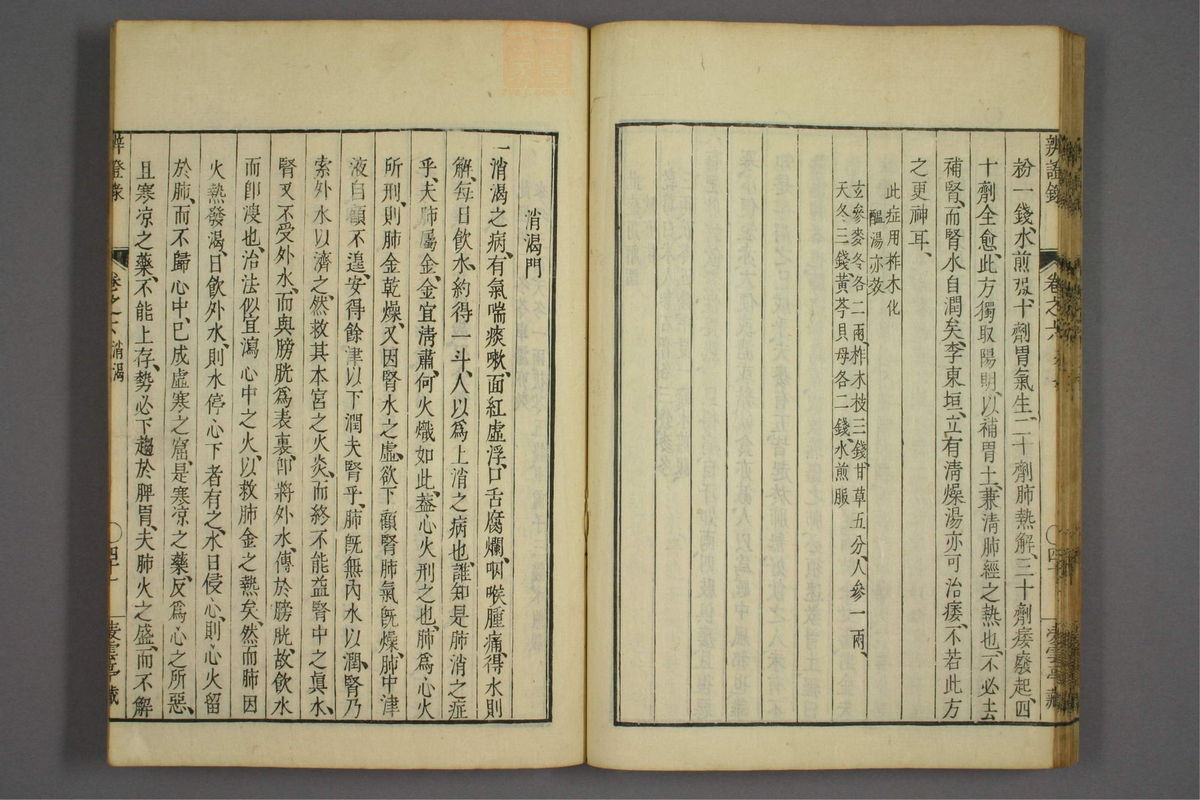 辨證錄
卷之六
粉一錢、水煎服、十劑胃氣生、二十劑肺熱解、三十劑痿廢起、四
十劑全愈、此方獨取陽明、以補胃土、兼淸肺經之熱也、不必去
補腎、而腎水自潤矣、李東垣、立有淸燥湯亦可治痿、不若此方
之更神耳、
此症用柞木化
醞湯亦效
玄參麥冬各二兩、柞木枝三錢甘草五分、人參一兩、
天冬三錢、黃芩貝母各二錢、水煎服
消渴門
一消渴之病、有氣喘痰嗽、面紅虛浮、口舌腐爛、咽喉腫痛、得水則
解、每日飮水、約得一斗、人以爲上消之病也、誰知是肺消之症
乎、夫肺屬金、金宜淸肅、何火熾如此、蓋心火刑之也、肺爲心火
所刑、則肺金乾燥、又因腎水之虛、欲下顧腎肺氣旣燥、肺中津
液自顧不遑、安得餘津以下潤夫腎乎、肺旣無內水以潤、腎乃
索外水以濟之、然救其本宮之火炎、而終不能益腎中之眞水、
腎又不受外水、而與膀胱爲表裏、卽將外水、傳於膀胱、故飮水
而卽溲也、治法似宜瀉心中之火、以救肺金之熱矣、然而肺因
火熱發渴、日飮外水、則水停心下者有之、水日侵心、則心火留
於肺、而不歸心中、已成虛寒之窟、是寒凉之藥、反爲心之所惡、
且寒凉之藥、不能上存、勢必下趨於脾胃、夫肺火之盛、而不解
消渴